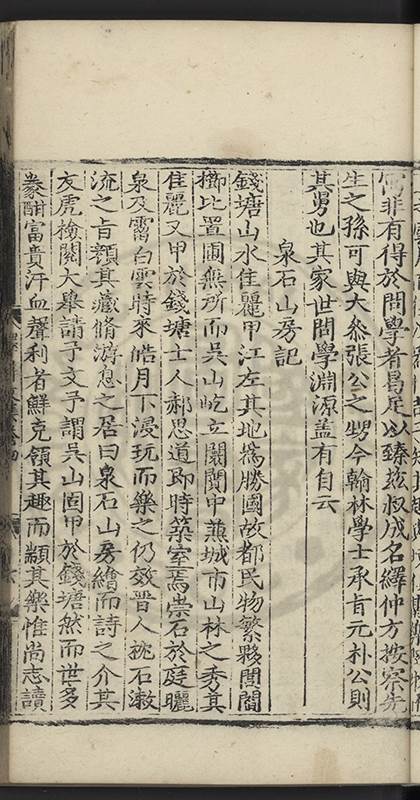 非有得於問學者曷足以臻茲叔成名繹仲方按察先
生之孫可與大參張公之甥今翰林學士承旨元朴公則
其舅也其家世問學淵源蓋有自云
泉石山房記
錢塘山水佳麗甲江左其地為勝國故都民物繁夥閭閻
櫛比置圃無所而吳山屹立闤闠中兼城市山林之秀其
佳麗又甲於錢塘士人郝思道即時築室焉崇石於庭曬
泉及霤白雲時來皓月下漫玩而樂之仍效晉人枕石漱
流之旨顏其藏脩游息之居曰泉石山房繪而詩之介其
友虎檢閱大舉請予文予謂吳山固甲於錢塘然而世多
豢酣富貴汗血聲利者鮮克領其趣而顓其樂惟尚志讀